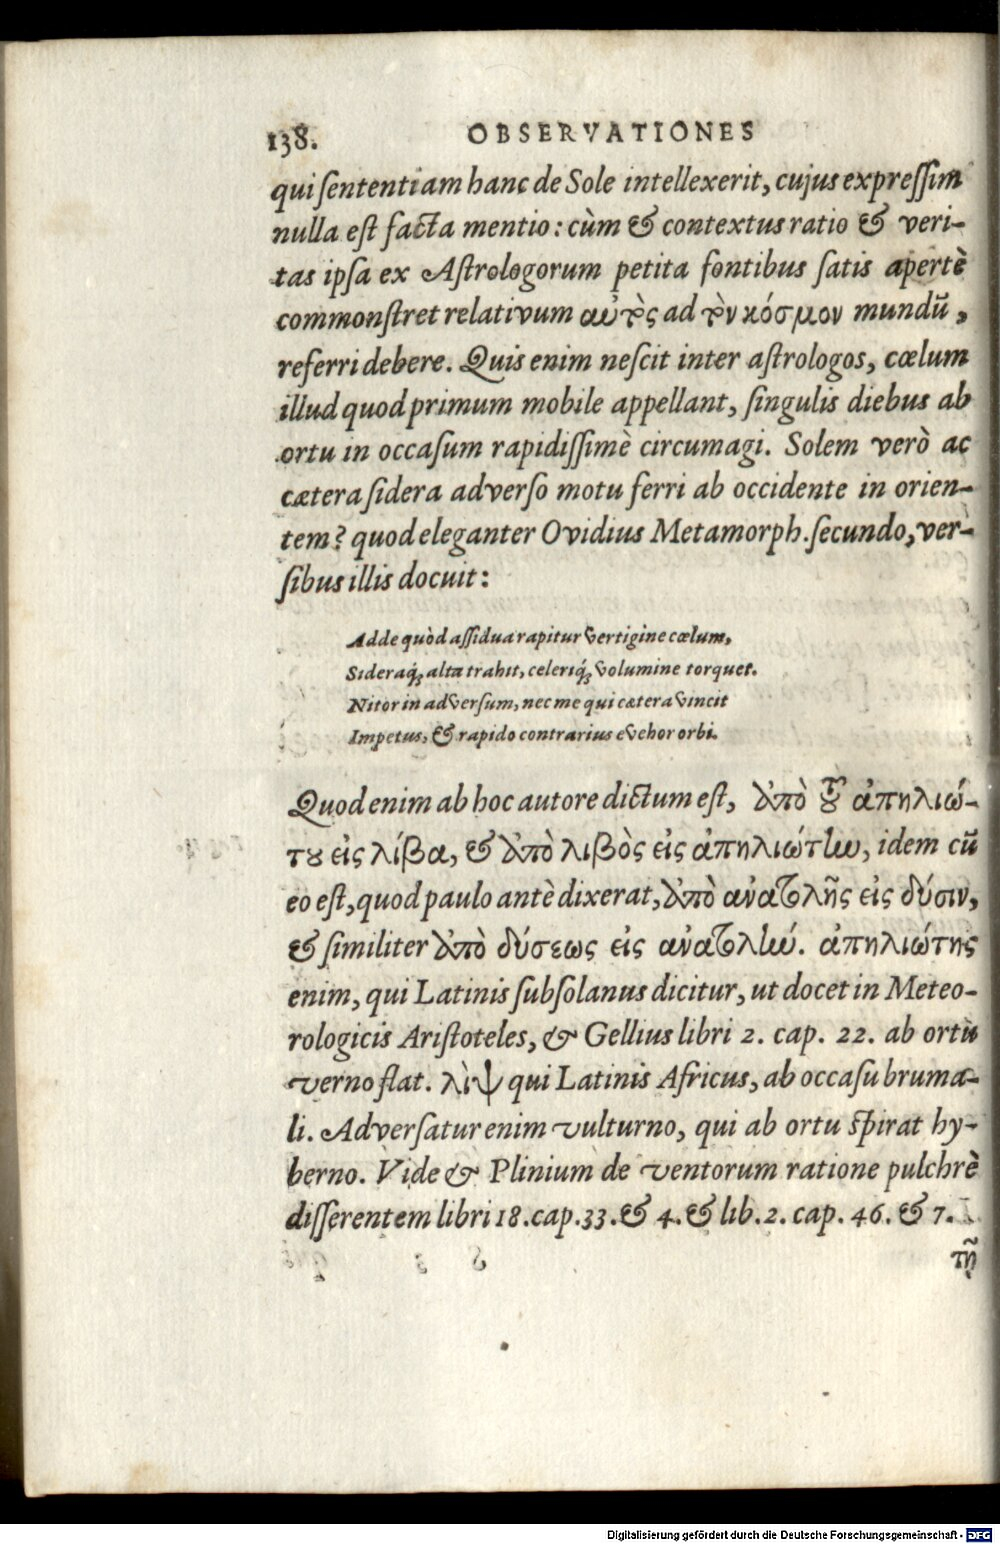 138. OBSERVATIONES
qui ſententiam hanc de Sole intellexerit, cujus expreſſim
nulla eſt facta mentio: cùm & contextus ratio & veri-
tas ipſa ex Aſtrologorum petita fontibus ſatis apertè
commonſtret relativum αὐτὸς ad τὸν κόσμον mundū,
referri debere. Quis enim neſcit inter aſtrologos, cœlum
illud quod primum mobile appellant, ſingulis diebus ab
ortu in occaſum rapidiſſimè circumagi. Solem verò ac
cætera ſidera adverſo motu ferri ab occidente in orien-
tem? quod eleganter Ovidius Metamorph. ſecundo, ver-
ſibus illis docuit:
Adde quòd aſſidua rapitur vertigine cœlum,
Sideraq́; alta trahit, celeriq́; volumine torquet.
Nitor in adverſum, nec me qui cætera vincit
Impetus, & rapido contrarius evehor orbi.
Quod enim ab hoc autore dictum eſt, ἀπὸ τοῦ ἀπηλιώ-
του εἰς λίβα, & ἀπὸ λιβὸς εἰς ἀπηλιώτην, idem cū
eo eſt, quod paulo antè dixerat, ἀπὸ ἀνατολῆς εἰς δύσιν,
& ſimiliter ἀπὸ δύσεως εἰς ἀνατολήν. ἀπηλιώτης
enim, qui Latinis ſubſolanus dicitur, ut docet in Meteo-
rologicis Ariſtoteles, & Gellius libri 2. cap. 22. ab ortu
verno flat. λὶψ qui Latinis Africus, ab occaſu bruma-
li. Adverſatur enim vulturno, qui ab ortu ſpirat hy-
berno. Vide & Plinium de ventorum ratione pulchrè
diſſerentem libri 18. cap. 33. & 4. & lib. 2. cap. 46. & 7.
τῇ
Digitalisierung gefördert durch die Deutsche Forschungsgemeinschaft - DFG